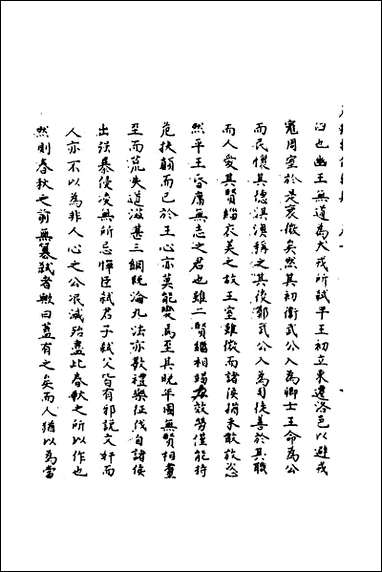 臼也幽王無道為犬戎所弑平王初立東遷洛邑以避戎
寇周室於是衰微矣然其初衛武公入為卿士王命為公
而民懷其德淇澳稱之其後鄭武公入為司徒善於其職
而人愛其賢緇衣美之故王室雖微而諸侯猶未敢放恣
然平王昏庸無志之君也雖二賢繼相竭力效勞僅能持
危扶顛而已於王心亦莫能變焉至其晚年國無賢相晝
至而荒失道滋甚三綱既淪九法亦斁禮樂征伐自諸侯
出强暴侵凌無所忌憚臣弑君子弑父皆有邪說文奸而
人亦不以為非人心之公泯滅殆盡此春秋之所以作也
然則春秋之前無篡弑者歟曰蓋有之矣而人猶以為當